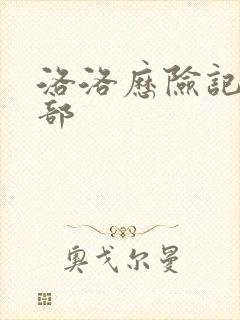 洛洛歷險記
部
奧戈尔曼